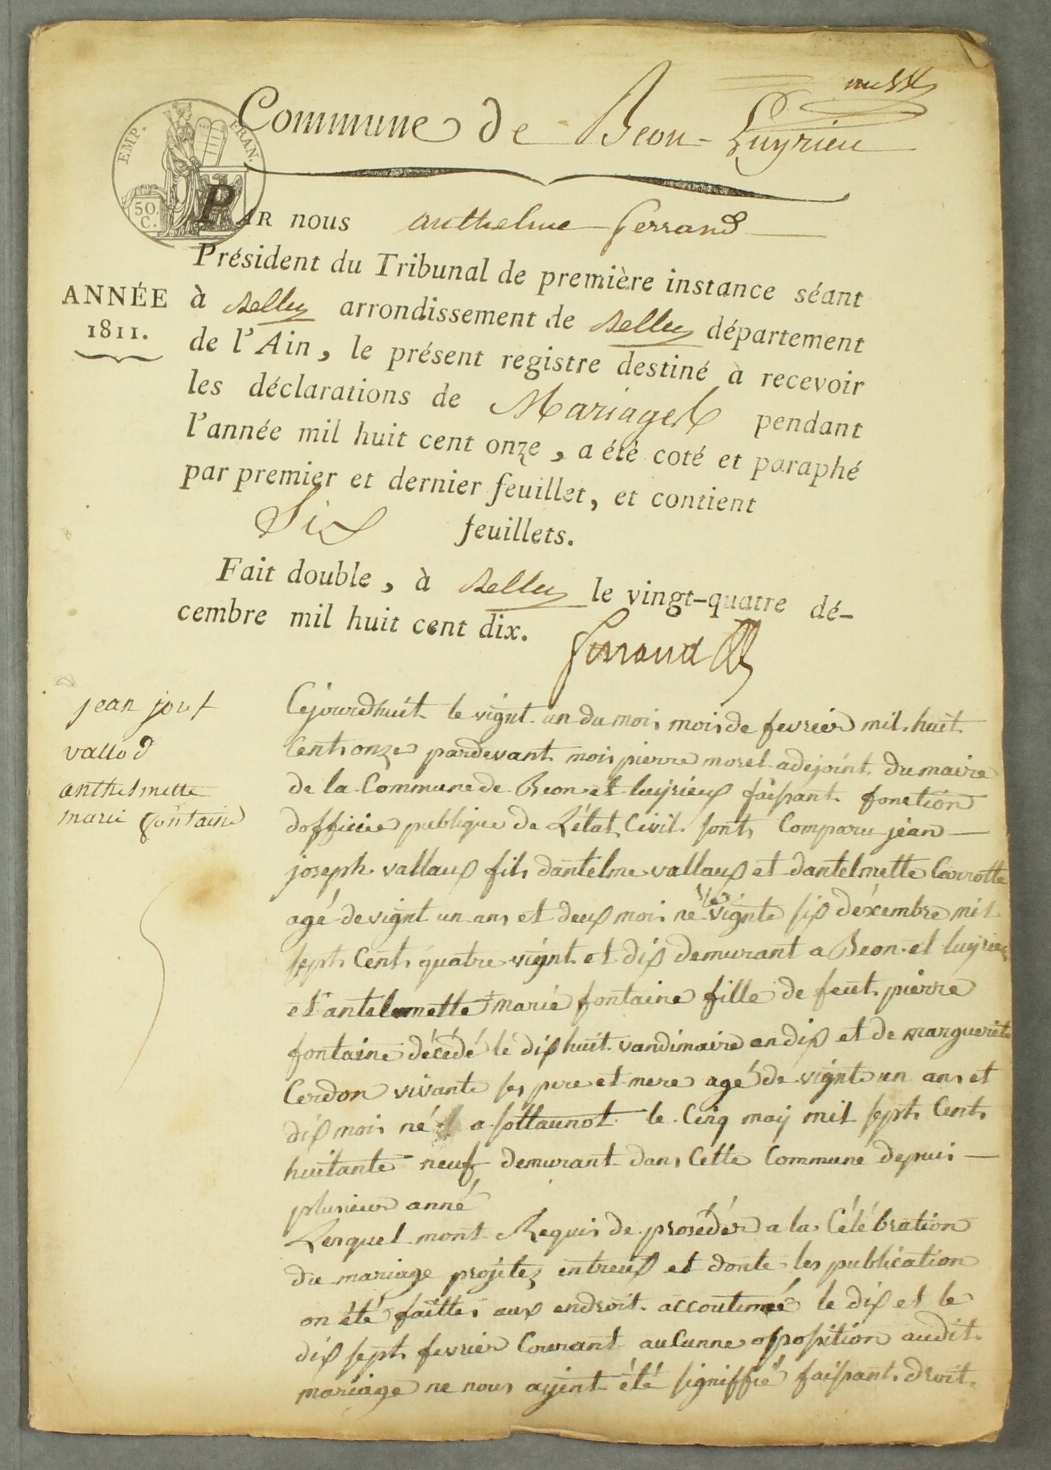 Commune de Beon-Luyrieu
EMP. FRAN.
50.
C.
PAR nous anthelme ferrand
Président du Tribunal de première instance séant
ANNÉE
1811.
à Belley arrondissement de Belley département
de l'Ain, le présent registre destiné à recevoir
les déclarations de Mariages pendant
l'année mil huit cent onze, a été coté et paraphé
par premier et dernier feuillet, et contient
Six feuillets.
Fait double, à Belley le vingt-quatre dé-
cembre mil huit cent dix.
ferrand
jean josf
vallod
anthelmette
marie fontaine
Cejourdhuit le vignt un du moi, moi, de fevrier mil huit
Cent, onze pardevant moi, pierre morel adejoint du maire
de la Commune de Beon et luyrieux faisant fonction
dofficié publique de L'état Civil sont, Comparu jean
joseph vallaux fils dantelme vallaux et dantelmette Carrotte
agé de vignt un ans et deux moi, né le vignte six déxembre mil
sept, Cent, quatre vignt et dix demurant a Beon et luyrieu
et antelmette marie fontaine fille de feut pierre
fontaine décédé le dix huit vandimaire an dix et de marguerite
Cerdon vivante ses pere et mere agé de vignte un ans et
dix moi, né a sottaunot le Cinq maij mil sept, Cent,
huitante neuf demurant dans Cette Commune depui,
plusieur anné
Lesquel mont Requis de prosédér a la Célébration
du mariage projetez entreux et donte les publication
on été faitte, aux endroit accoutumé le dix et le
dix sept, fevrier Courant aucunne opposition audit
mariage ne nous ayint été signiffié faisant droit